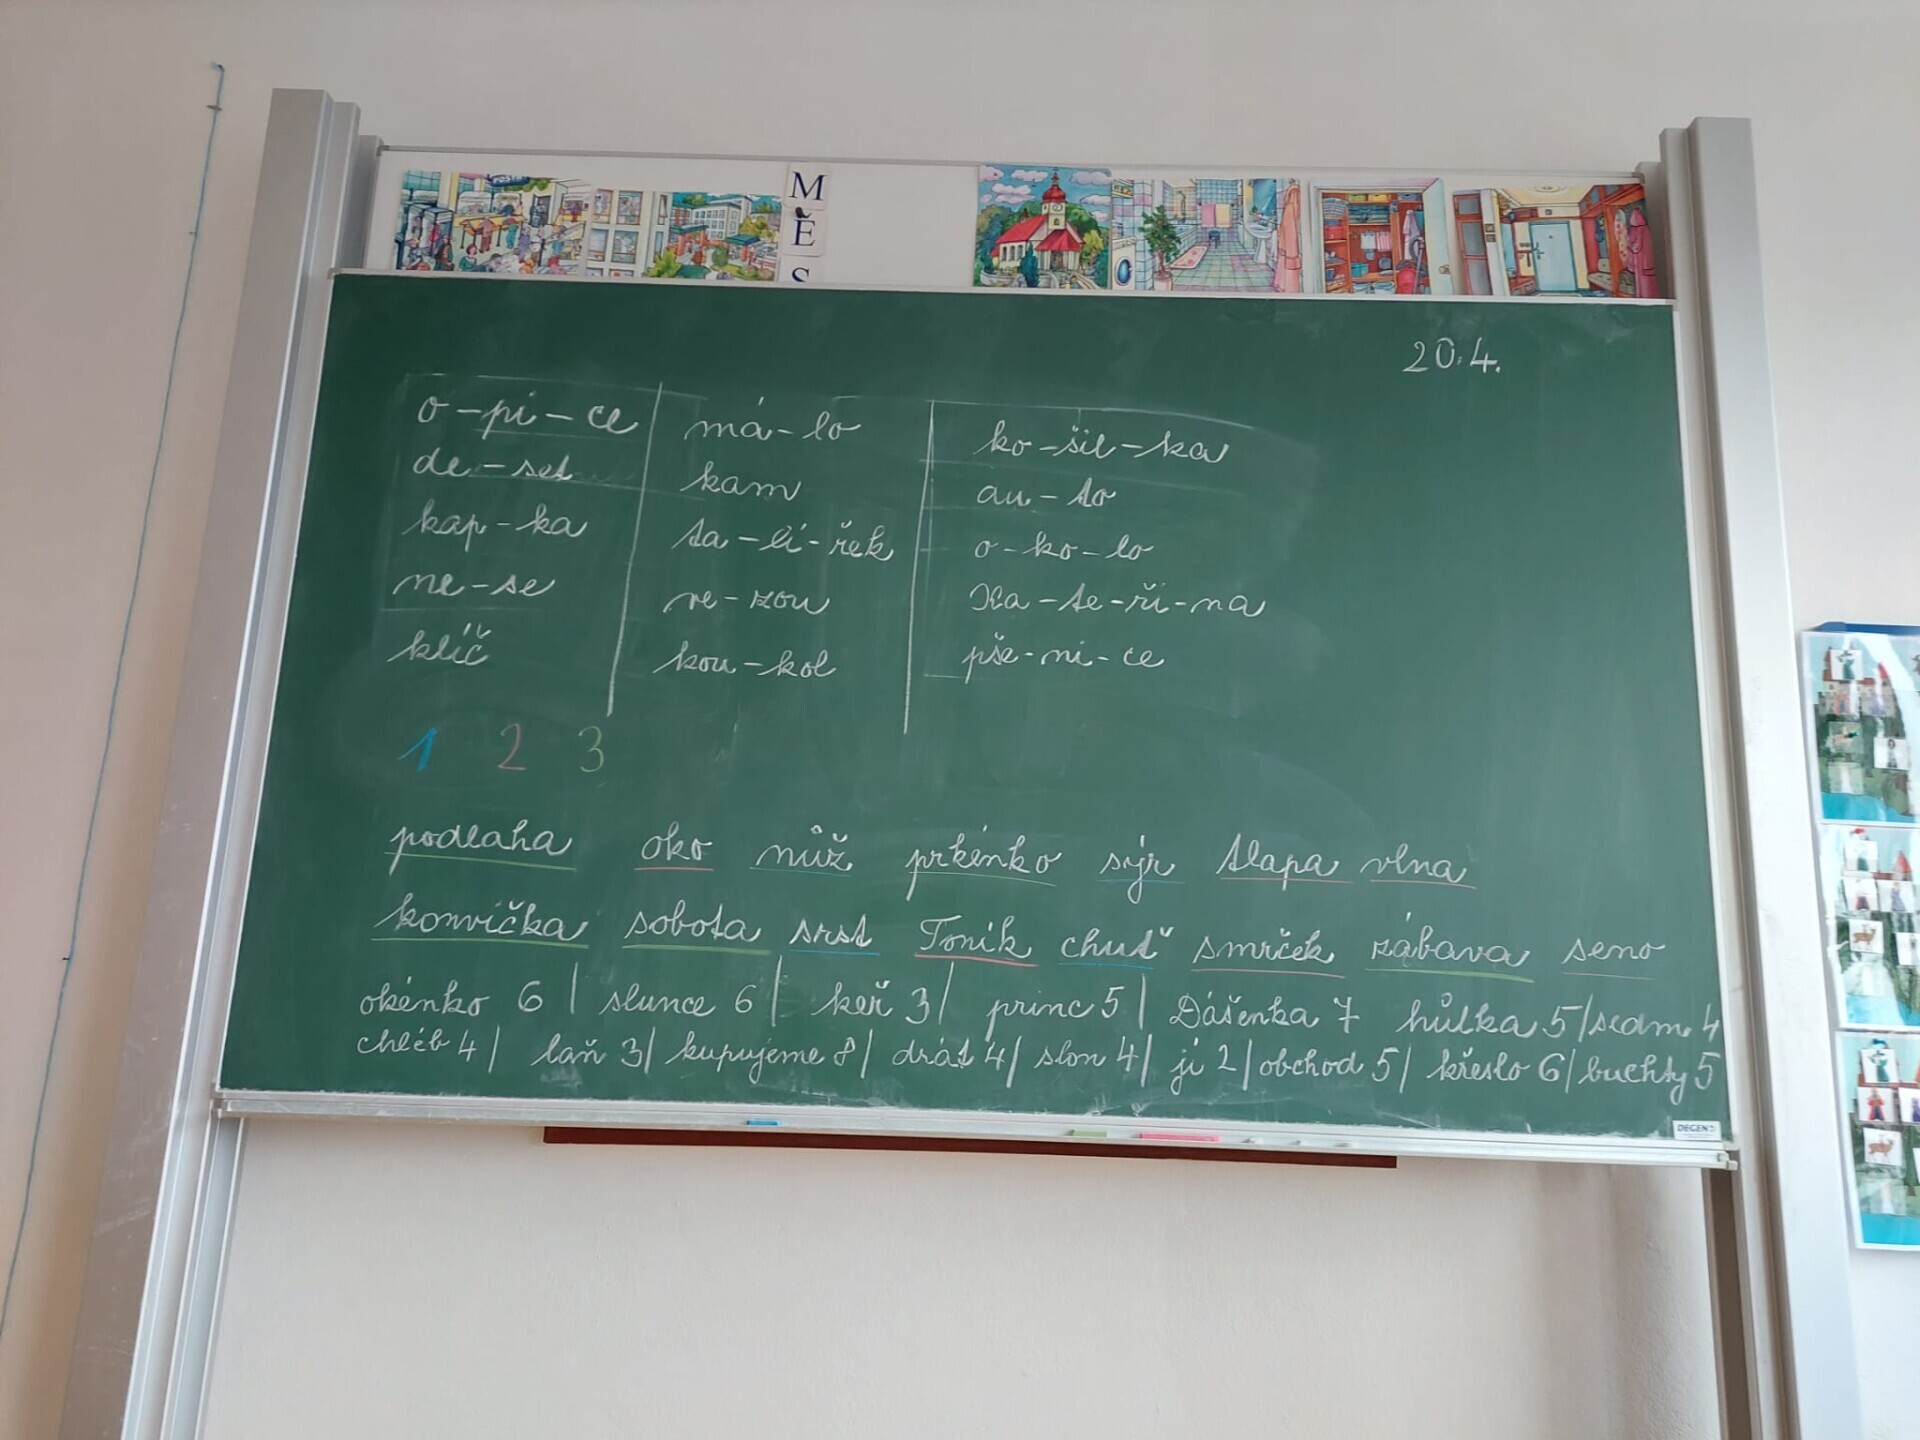 M
Ě
S
20.4.
o-pi-ce má-lo ko-šil-ka
de-set kam au-to
kap-ka ta-lí-řek o-ko-lo
ne-se ve-zou Ka-te-ři-na
klíč kou-kol pše-ni-ce
1 2 3
podlaha oko nůž prkénko sýr tlapa vlna
konvička sobota srst Toník chuť smrček zábava seno
okénko 6 | slunce 6 | keř 3 | princ 5 | Dášenka 7 hůlka 5 | sedm 4
chléb 4 | laň 3 | kupujeme 8 | drát 4 | slon 4 | jí 2 | obchod 5 | křeslo 6 | buchty 5